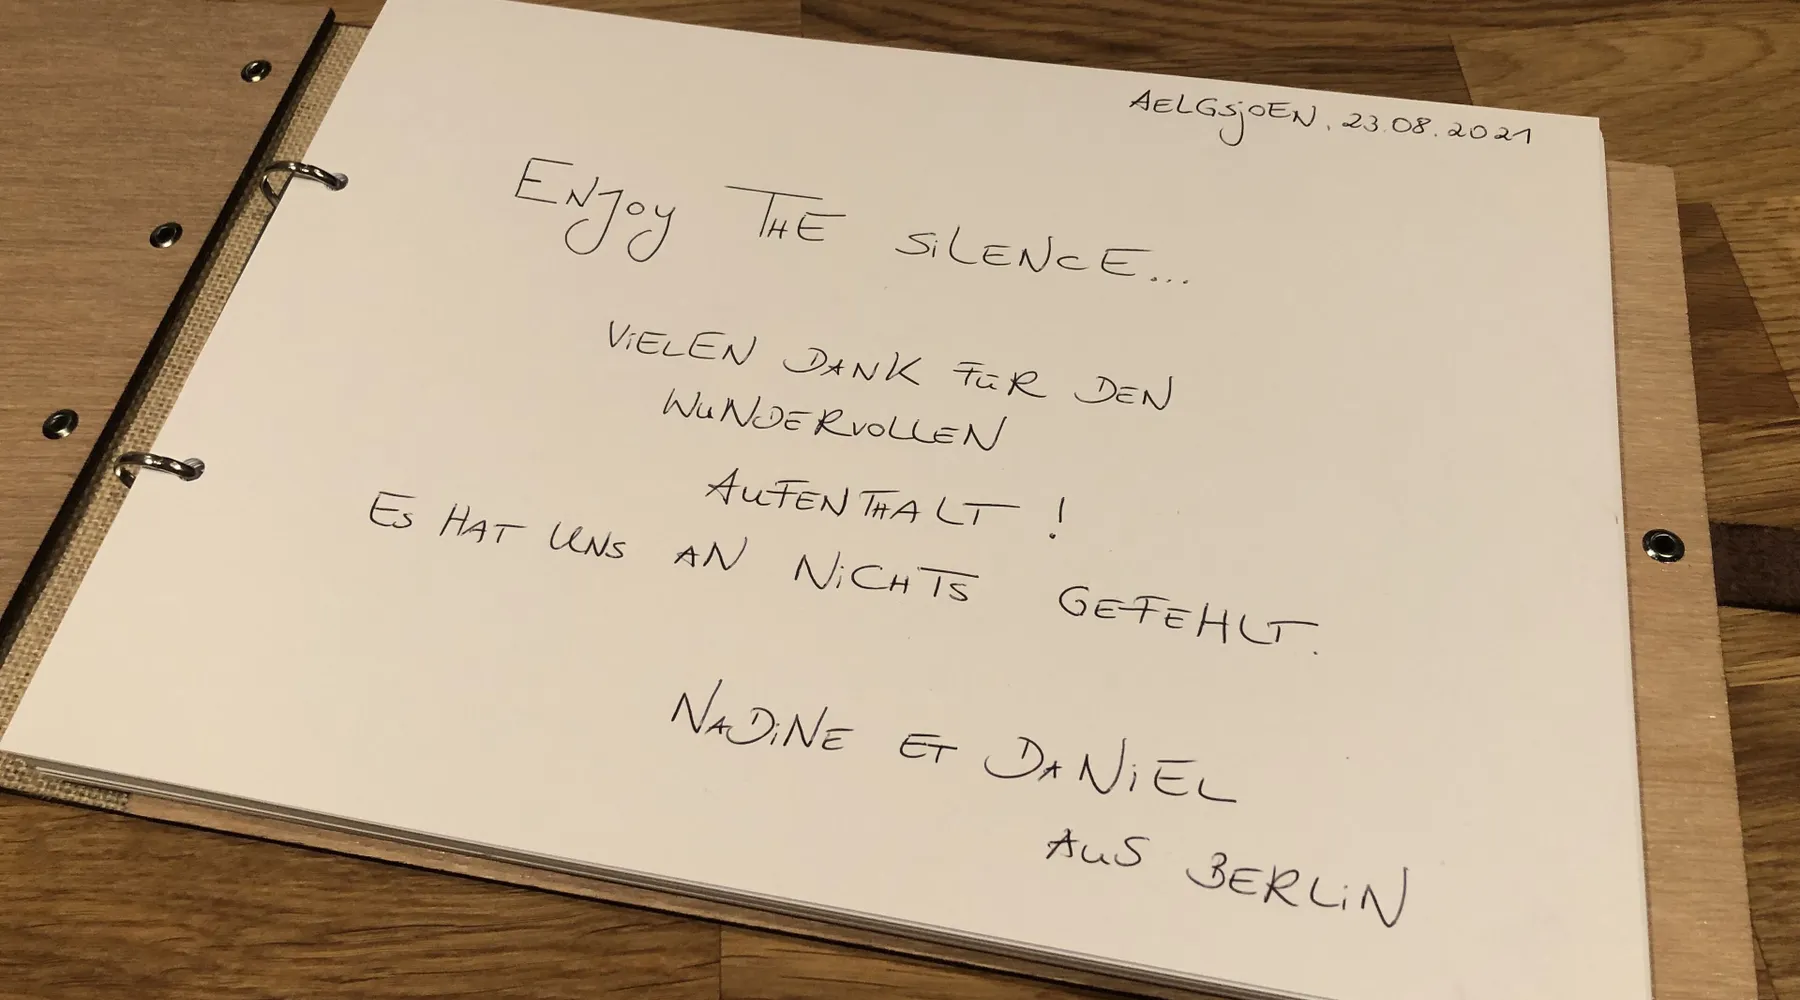 AELGSjOEN, 23.08.2021
ENJOY THE SiLENCE...
ViELEN DANK FÜR DEN
WUNDERVOLLEN
AUFENTHALT !
ES HAT UNS AN NiCHTS GEFEHLT.
NADiNE ET DANiEL
AUS BERLiN